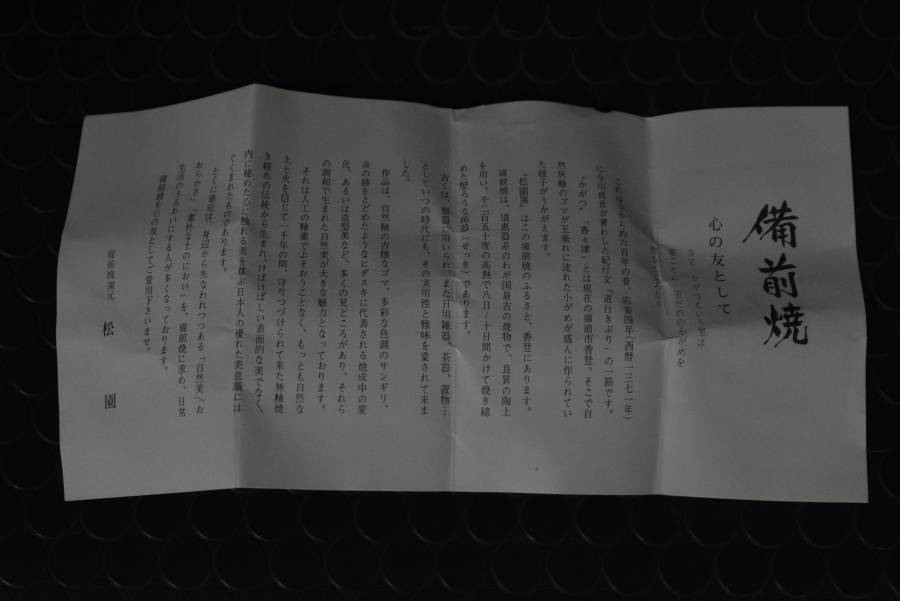 備前焼
心の友として
さて、かがつという里は
家ごとに玉だれの小がめを
作るところなり―
これは今から約六百年の昔、応安四年（西暦一三七一年）
に今川貞世が著わした紀行文『道行きぶり』の一節です。
“かがつ”“香々津”とは現在の備前市香登。そこで自
然灰釉のゴマが玉垂れに流れた小がめが盛んに作られてい
た様子がうかがえます。
“松園窯”はこの備前焼のふるさと、香登にあります。
備前焼は、須恵器系のわが国最古の焼物で、良質の陶土
を用い、千二百五十度の高熱で八日―十日間かけて焼き締
めた堅ろうな炻器（せっき）であります。
古くは、祭器に用いられ、また日用雑器、茶器、置物…
としていつの時代にも、その実用性と雅味を愛されて来ま
した。
作品は、自然釉の古雅なゴマ、多彩な色調のサンギリ、
炎の跡をとどめたようなヒダスキに代表される焼成中の変
化、あるいは造型美など、多くの見どころがあり、それら
の調和で生まれた自然美が大きな魅力となっております。
それは人工の釉薬でよそおうことなく、もっとも自然な
土と火を信じて一千年の間、守りつづけられて来た無釉焼
き締めの伝統から生まれ、けばけばしい表面的な美でなく、
内に秘めた心に触れる美を尊ぶ日本人の優れた美意識には
ぐくまれたものであります。
とくに最近は、身辺から失なわれつつある「自然美」「お
おらかさ」「素朴な土のにおい」を、備前焼に求め、日常
生活のうるおいにする人が多くなっております。
備前焼を心の友としてご愛用下さいませ。
備前焼窯元 松園